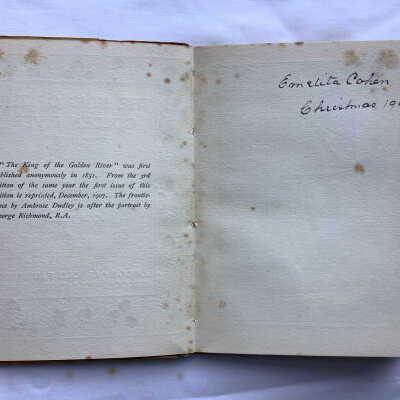 "The King of the Golden River" was first
blished anonymously in 1851. From the 3rd
ition of the same year the first issue of this
ition is reprinted, December, 1907. The frontis-
ece by Ambrose Dudley is after the portrait by
eorge Richmond, R.A.
Cohen
Christmas 19